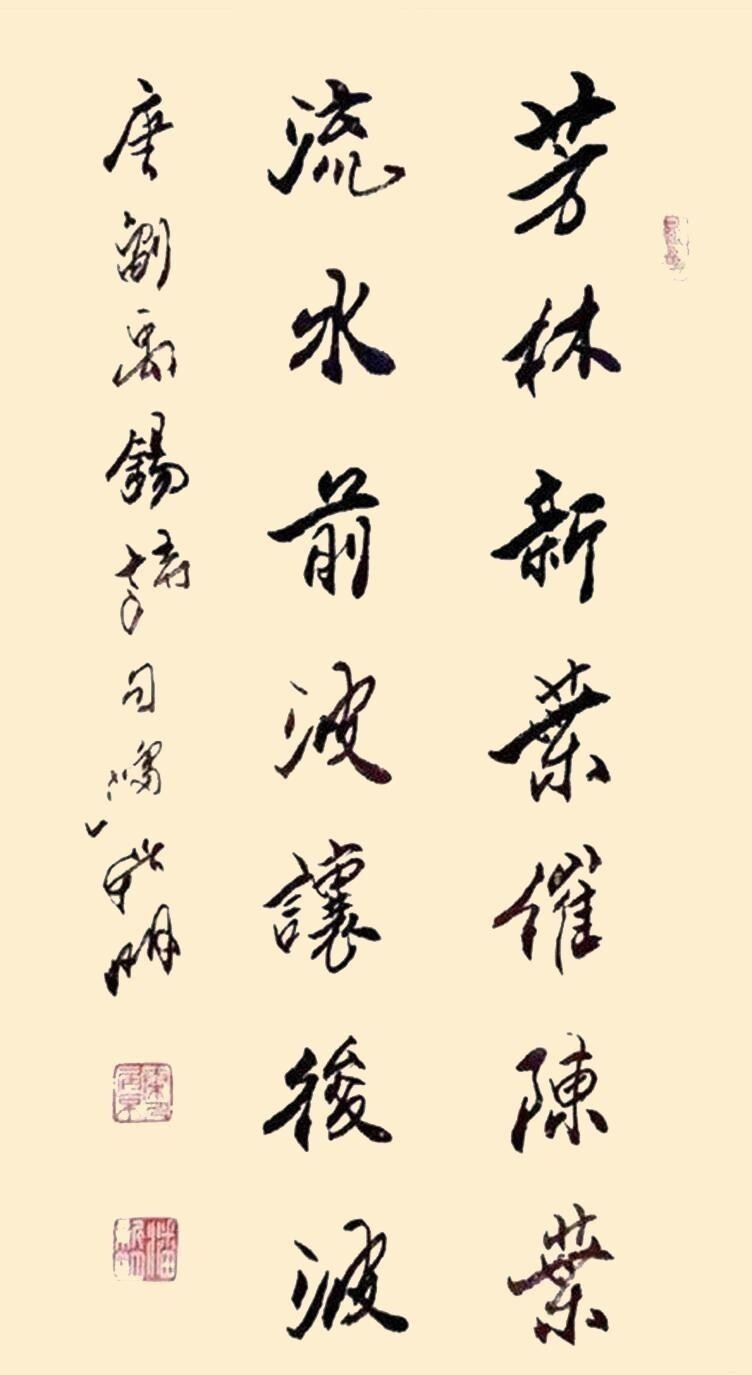 芳林新葉催陳葉
流水前波讓後波
唐劉禹錫句明